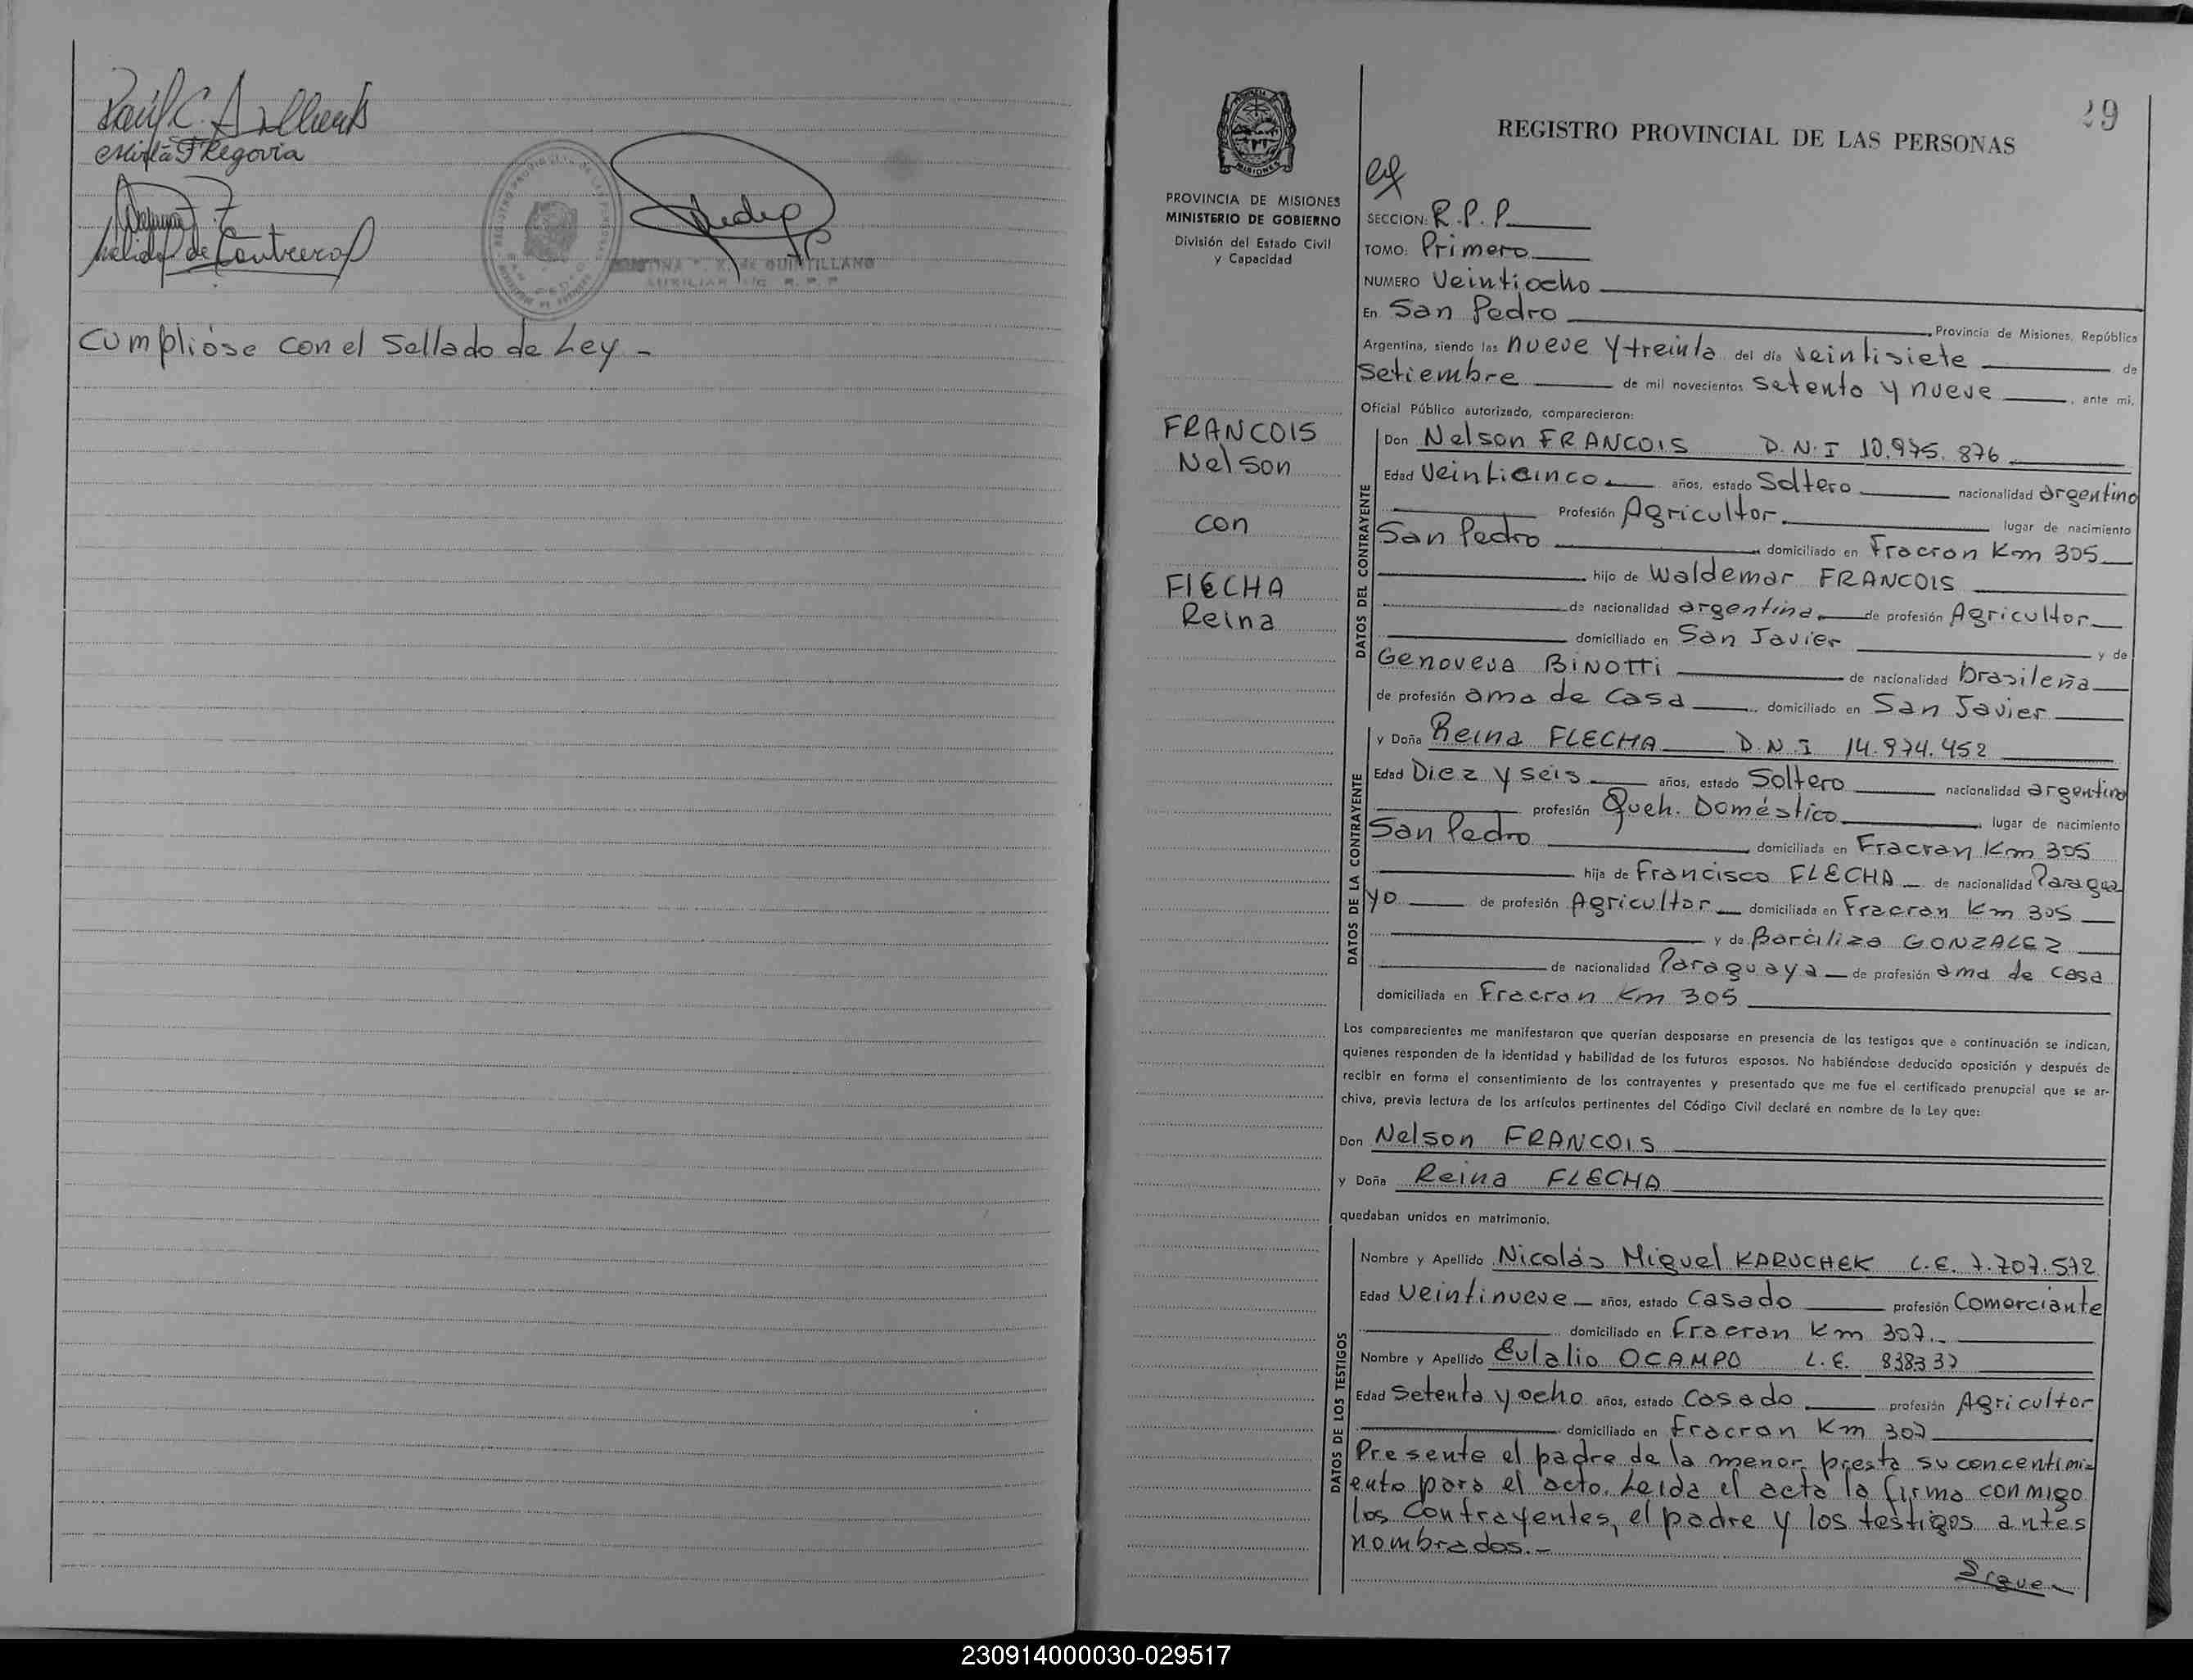 Raúl C. A
Mirta F Segovia
Nelida de Contreras
DE QUINTILLANO
AUXILIAR R. P. P
Cumplióse con el Sellado de Ley -
29
REGISTRO PROVINCIAL DE LAS PERSONAS
PROVINCIA DE MISIONES
MINISTERIO DE GOBIERNO
División del Estado Civil
y Capacidad
SECCION: R.P.P.
TOMO: Primero
NUMERO Veintiocho
En San Pedro Provincia de Misiones, República
Argentina, siendo las nueve y treinta del día veintisiete de
Setiembre de mil novecientos setenta y nueve, ante mi,
Oficial Público autorizado, comparecieron:
FRANCOIS
Nelson
con
FLECHA
Reina
DATOS DEL CONTRAYENTE
Don Nelson FRANCOIS D.N.I 10.975.876
Edad Veinticinco años, estado Soltero nacionalidad argentino
Profesión Agricultor lugar de nacimiento
San Pedro domiciliado en Fracran Km 305
hijo de Waldemar FRANCOIS
de nacionalidad argentina de profesión Agricultor
domiciliado en San Javier y de
Genoveva BINOTTI de nacionalidad brasileña
de profesión ama de casa domiciliado en San Javier
DATOS DE LA CONTRAYENTE
y Doña Reina FLECHA D.N.I 14.974.452
Edad Diez y seis años, estado Soltero nacionalidad argentina
profesión Queh. Doméstico lugar de nacimiento
San Pedro domiciliada en Fracran Km 305
hija de Francisco FLECHA de nacionalidad Paragua
yo de profesión Agricultor domiciliada en Fracran Km 305
y de Barciliza GONZALEZ
de nacionalidad Paraguaya de profesión ama de casa
domiciliada en Fracran Km 305
Los comparecientes me manifestaron que querían desposarse en presencia de los testigos que a continuación se indican,
quienes responden de la identidad y habilidad de los futuros esposos. No habiéndose deducido oposición y después de
recibir en forma el consentimiento de los contrayentes y presentado que me fue el certificado prenupcial que se ar-
chiva, previa lectura de los artículos pertinentes del Código Civil declaré en nombre de la Ley que:
Don Nelson FRANCOIS
y Doña Reina FLECHA
quedaban unidos en matrimonio.
DATOS DE LOS TESTIGOS
Nombre y Apellido Nicolás Miguel KARUCHEK L.E. 7.707.572
Edad Veintinueve años, estado Casado profesión Comerciante
domiciliado en Fracran Km 307.
Nombre y Apellido Eulalio OCAMPO L.E. 838337
Edad Setenta y ocho años, estado Casado profesión Agricultor
domiciliado en Fracran Km 307
Presente el padre de la menor, presta su concentimi=
ento para el acto. Leida el acta la firma conmigo
los contrayentes, el padre y los testigos antes
nombrados.-
Sigue-
230914000030-029517